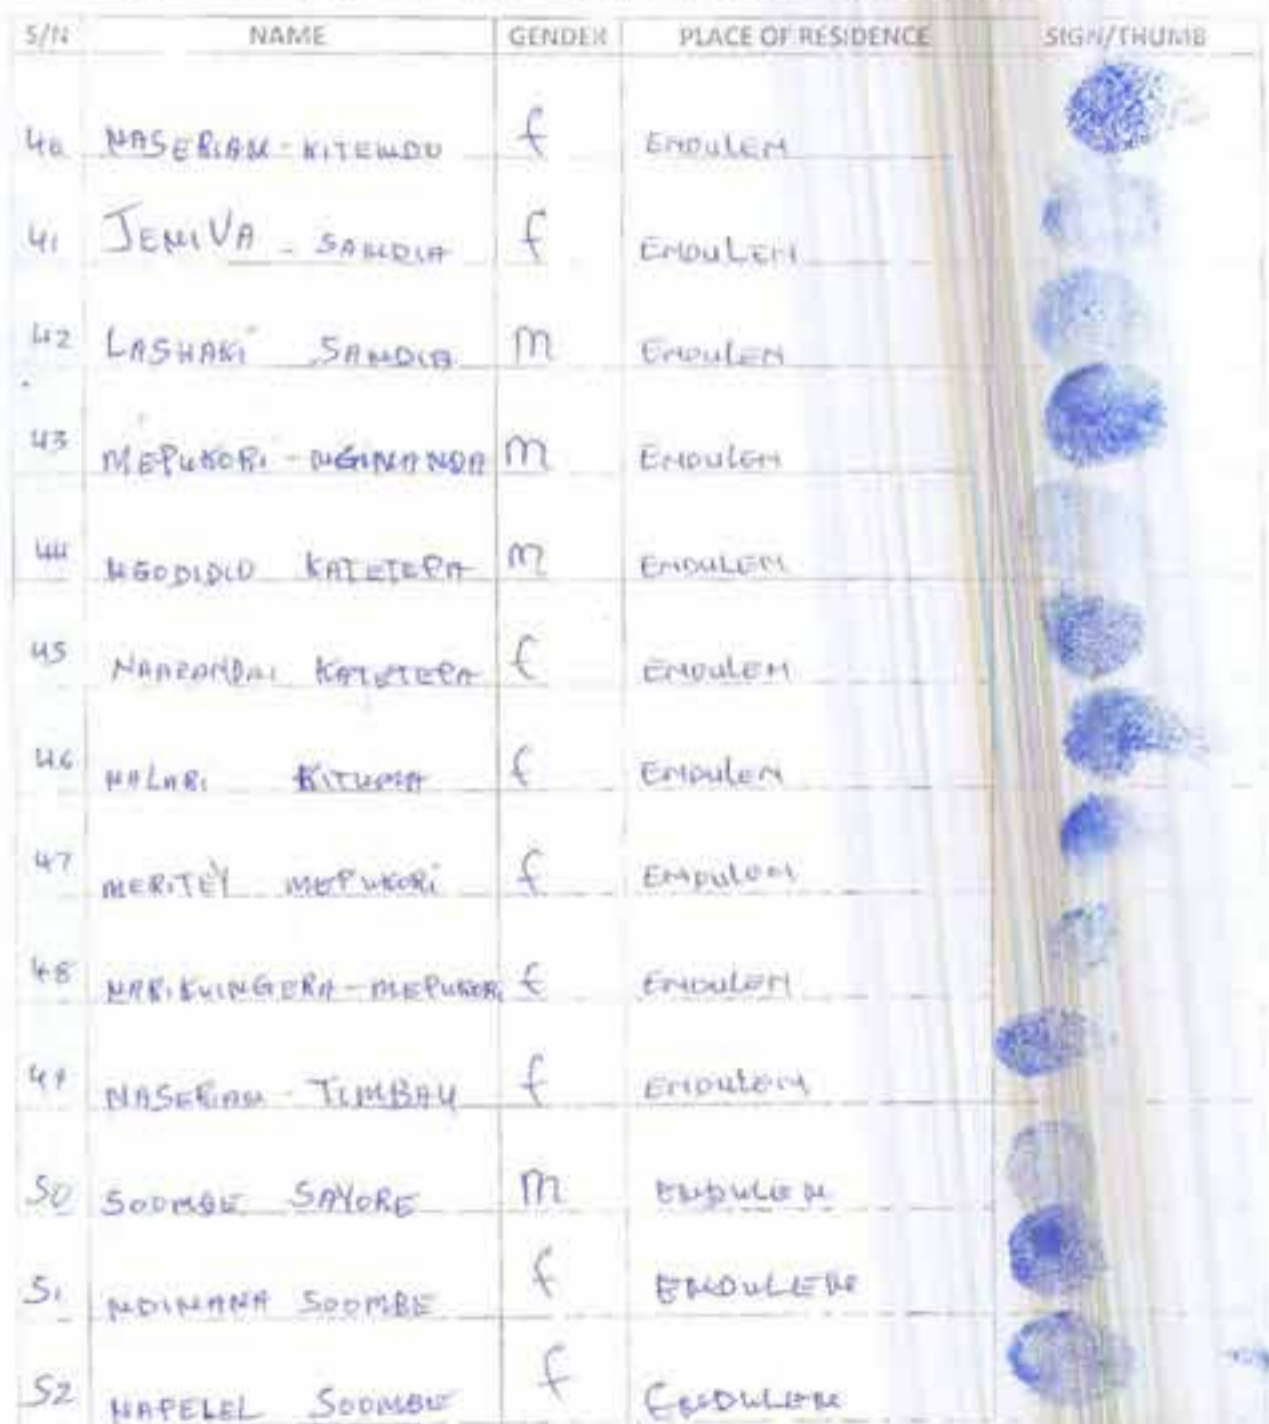 S/N NAME GENDER PLACE OF RESIDENCE SIGN/THUMB
40 NASERIAN - KITENDO f ENDULEN
41 JENIVA - SANDIA f ENDULEN
42 LASHAKI SANDIA m ENDULEN
43 MEPUKORI - NGINANDA m ENDULEN
44 NGODIDIO KATETEPA m ENDULEN
45 KATETEPA f ENDULEN
46 f ENDULEN
47 MERITEY MEPUKORI f ENDULEN
48 NARIKUINGERA - MEPUKORI f ENDULEN
49 NASERIAN - TIMBAU f ENDULEN
50 SOOMBE SAYORE m ENDULEN
51 NDINANA SOOMBE f ENDULEN
52 NAPELEL SOOMBE f ENDULEN